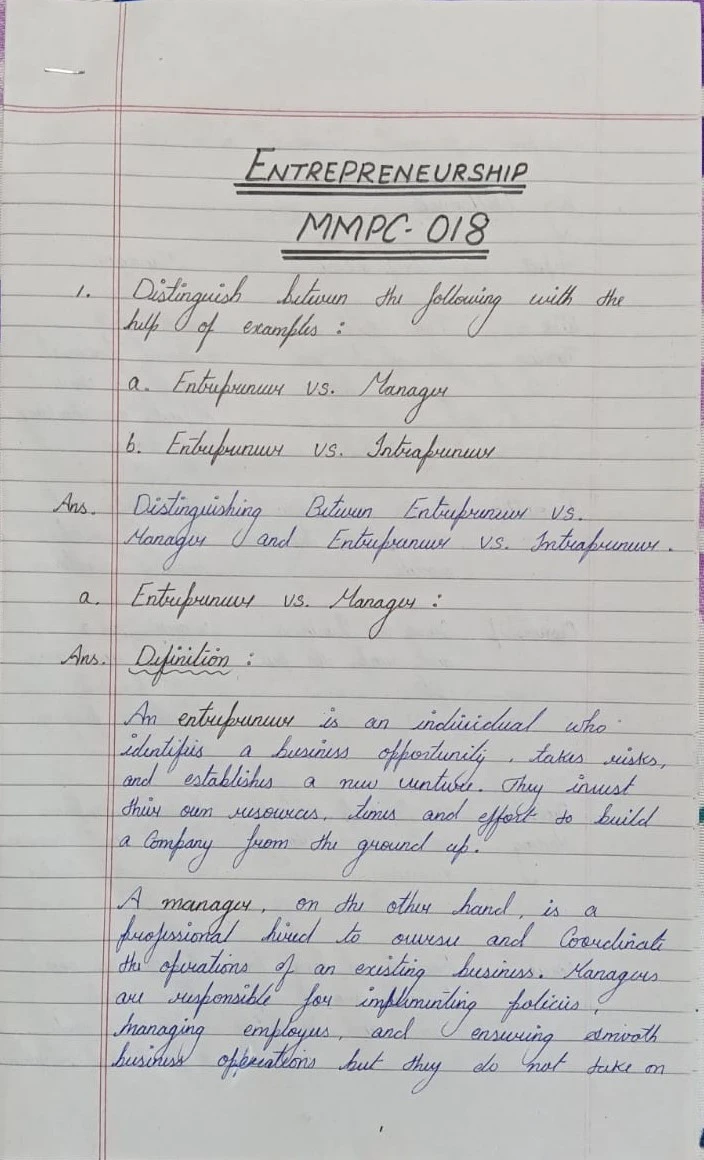 ENTREPRENEURSHIP
MMPC-018
1. Distinguish between the following with the
help of examples :
a. Entrepreneur vs. Manager
b. Entrepreneur vs. Intrapreneur
Ans. Distinguishing Between Entrepreneur vs.
Manager and Entrepreneur vs. Intrapreneur.
a. Entrepreneur vs. Manager :
Ans. Definition :
An entrepreneur is an individual who
identifies a business opportunity, takes risks,
and establishes a new venture. They invest
their own resources, times and effort to build
a Company from the ground up.
A manager, on the other hand, is a
professional hired to oversee and Coordinate
the operations of an existing business. Managers
are responsible for implementing policies,
managing employees, and ensuring smooth
business operations but they do not take on